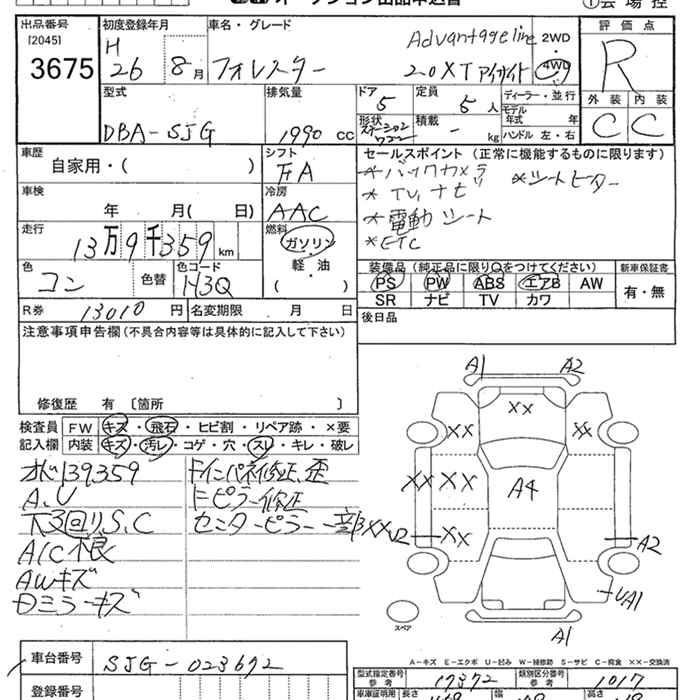 オークション出品申込書
①会場控
出品番号
[2045]
3675
初度登録年月
H 26 8月
車名・グレード
Advantageline
フォレスター 2.0XTアイサイト
2WD
4WD
評価点
R
外装 内装
C C
型式
DBA-SJG
排気量
1990 cc
ドア
5
定員
5人
形状
ステーションワゴン
積載
- kg
ディーラー・並行
モデル年式 年
ハンドル 左・右
車歴
自家用・( )
シフト
FA
セールスポイント(正常に機能するものに限ります)
*バックカメラ
*シートヒーター
*TV,ナビ
*電動シート
*ETC
車検
年 月( 日)
冷房
AAC
走行
13万9千359km
燃料
ガソリン
軽・油
( ・ )
色
コン
色替
色コード
H3Q
装備品(純正品に限り○をつけてください)
PS PW ABS エアB AW
SR ナビ TV カワ
新車保証書
有・無
R券 13010円
名変期限 月 日
後日品
注意事項申告欄(不具合内容等は具体的に記入して下さい)
修復歴 有 〔箇所 〕
検査員記入欄
FW キズ・飛石・ヒビ割・リペア跡・×要
内装 キズ・汚レ・コゲ・穴・スレ・キレ・破レ
オド139359
A.U
下3回りS.C
A/C不良
AWキズ
日ミラーキズ
ドインパネ修正、歪
ドピラー修正
センターピラー一部XX
A1 A2
XX
XX XX
XX XX A4
XX
U2
A2
UA1
A1
スペア
A-キズ E-エクボ U-凹み W-補修跡 S-サビ C-腐食 XX-交換済
車台番号
SJG-023692
登録番号
型式指定番号 参考
17372
類別区分番号 参考
1017
車庫証明用 長さ 幅 高さ